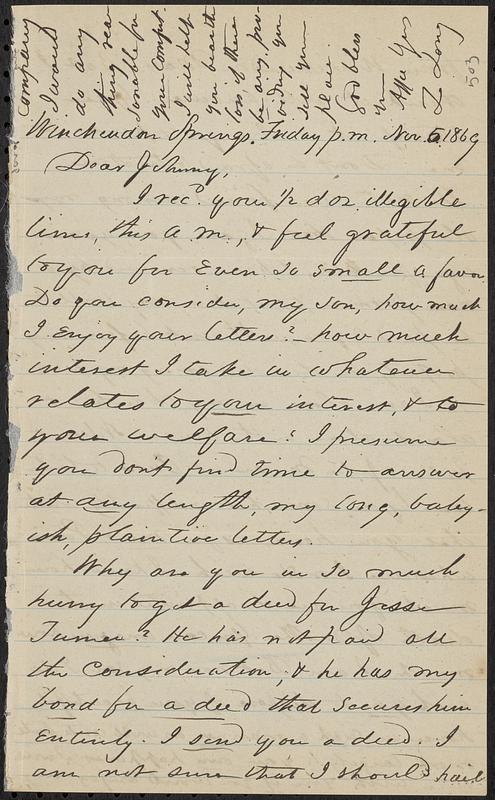 Winchendon Springs. Friday p.m. Nov. 5 1869
Dear Johnny,
I rec.d your 1/2 doz illegible
lines, this a.m., & feel grateful
to you for even so small a favor.
Do you consider, my son, how much
I enjoy your letters? - how much
interest I take in whatever
relates to your interest, & to
your welfare? I presume
you don't find time to answer
at any length, my long, baby-
ish, plaintive letters.
Why are you in so much
hurry to get a deed for Jesse
Turner? He has not paid all
the consideration; & he has my
bond for a deed that secures him
entirely. I send you a deed. I
am not sure that I should hail
company
I would
do any
thing rea-
sonable for
your comfort.
I will help
you bear the
loss, if there
be any, pro-
viding you
sell your
place.
God bless
you
Affec yrs
Z Long
503